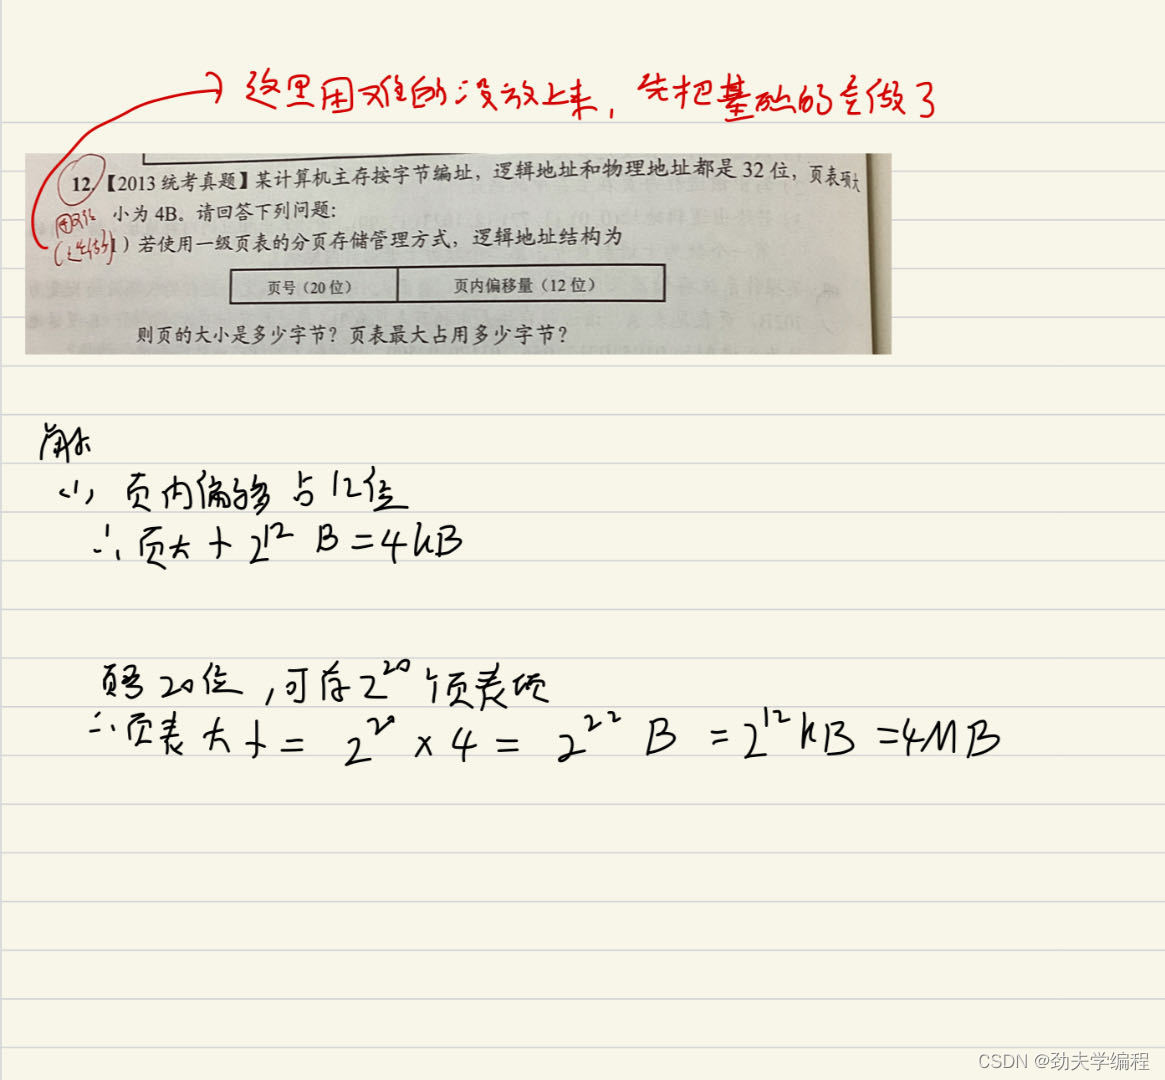 这里困难的没放上来，先把基础的会做了
12.【2013 统考真题】某计算机主存按字节编址，逻辑地址和物理地址都是 32 位，页表项大
小为 4B。请回答下列问题：
1）若使用一级页表的分页存储管理方式，逻辑地址结构为
页号（20 位） 页内偏移量（12 位）
则页的大小是多少字节？页表最大占用多少字节？
解
(1) 页内偏移占12位
∴页大小2^12 B=4kB
页号20位,可存2^20个页表项
∴页表大小= 2^20 × 4 = 2^22 B = 2^12 kB =4MB
CSDN @劲夫学编程